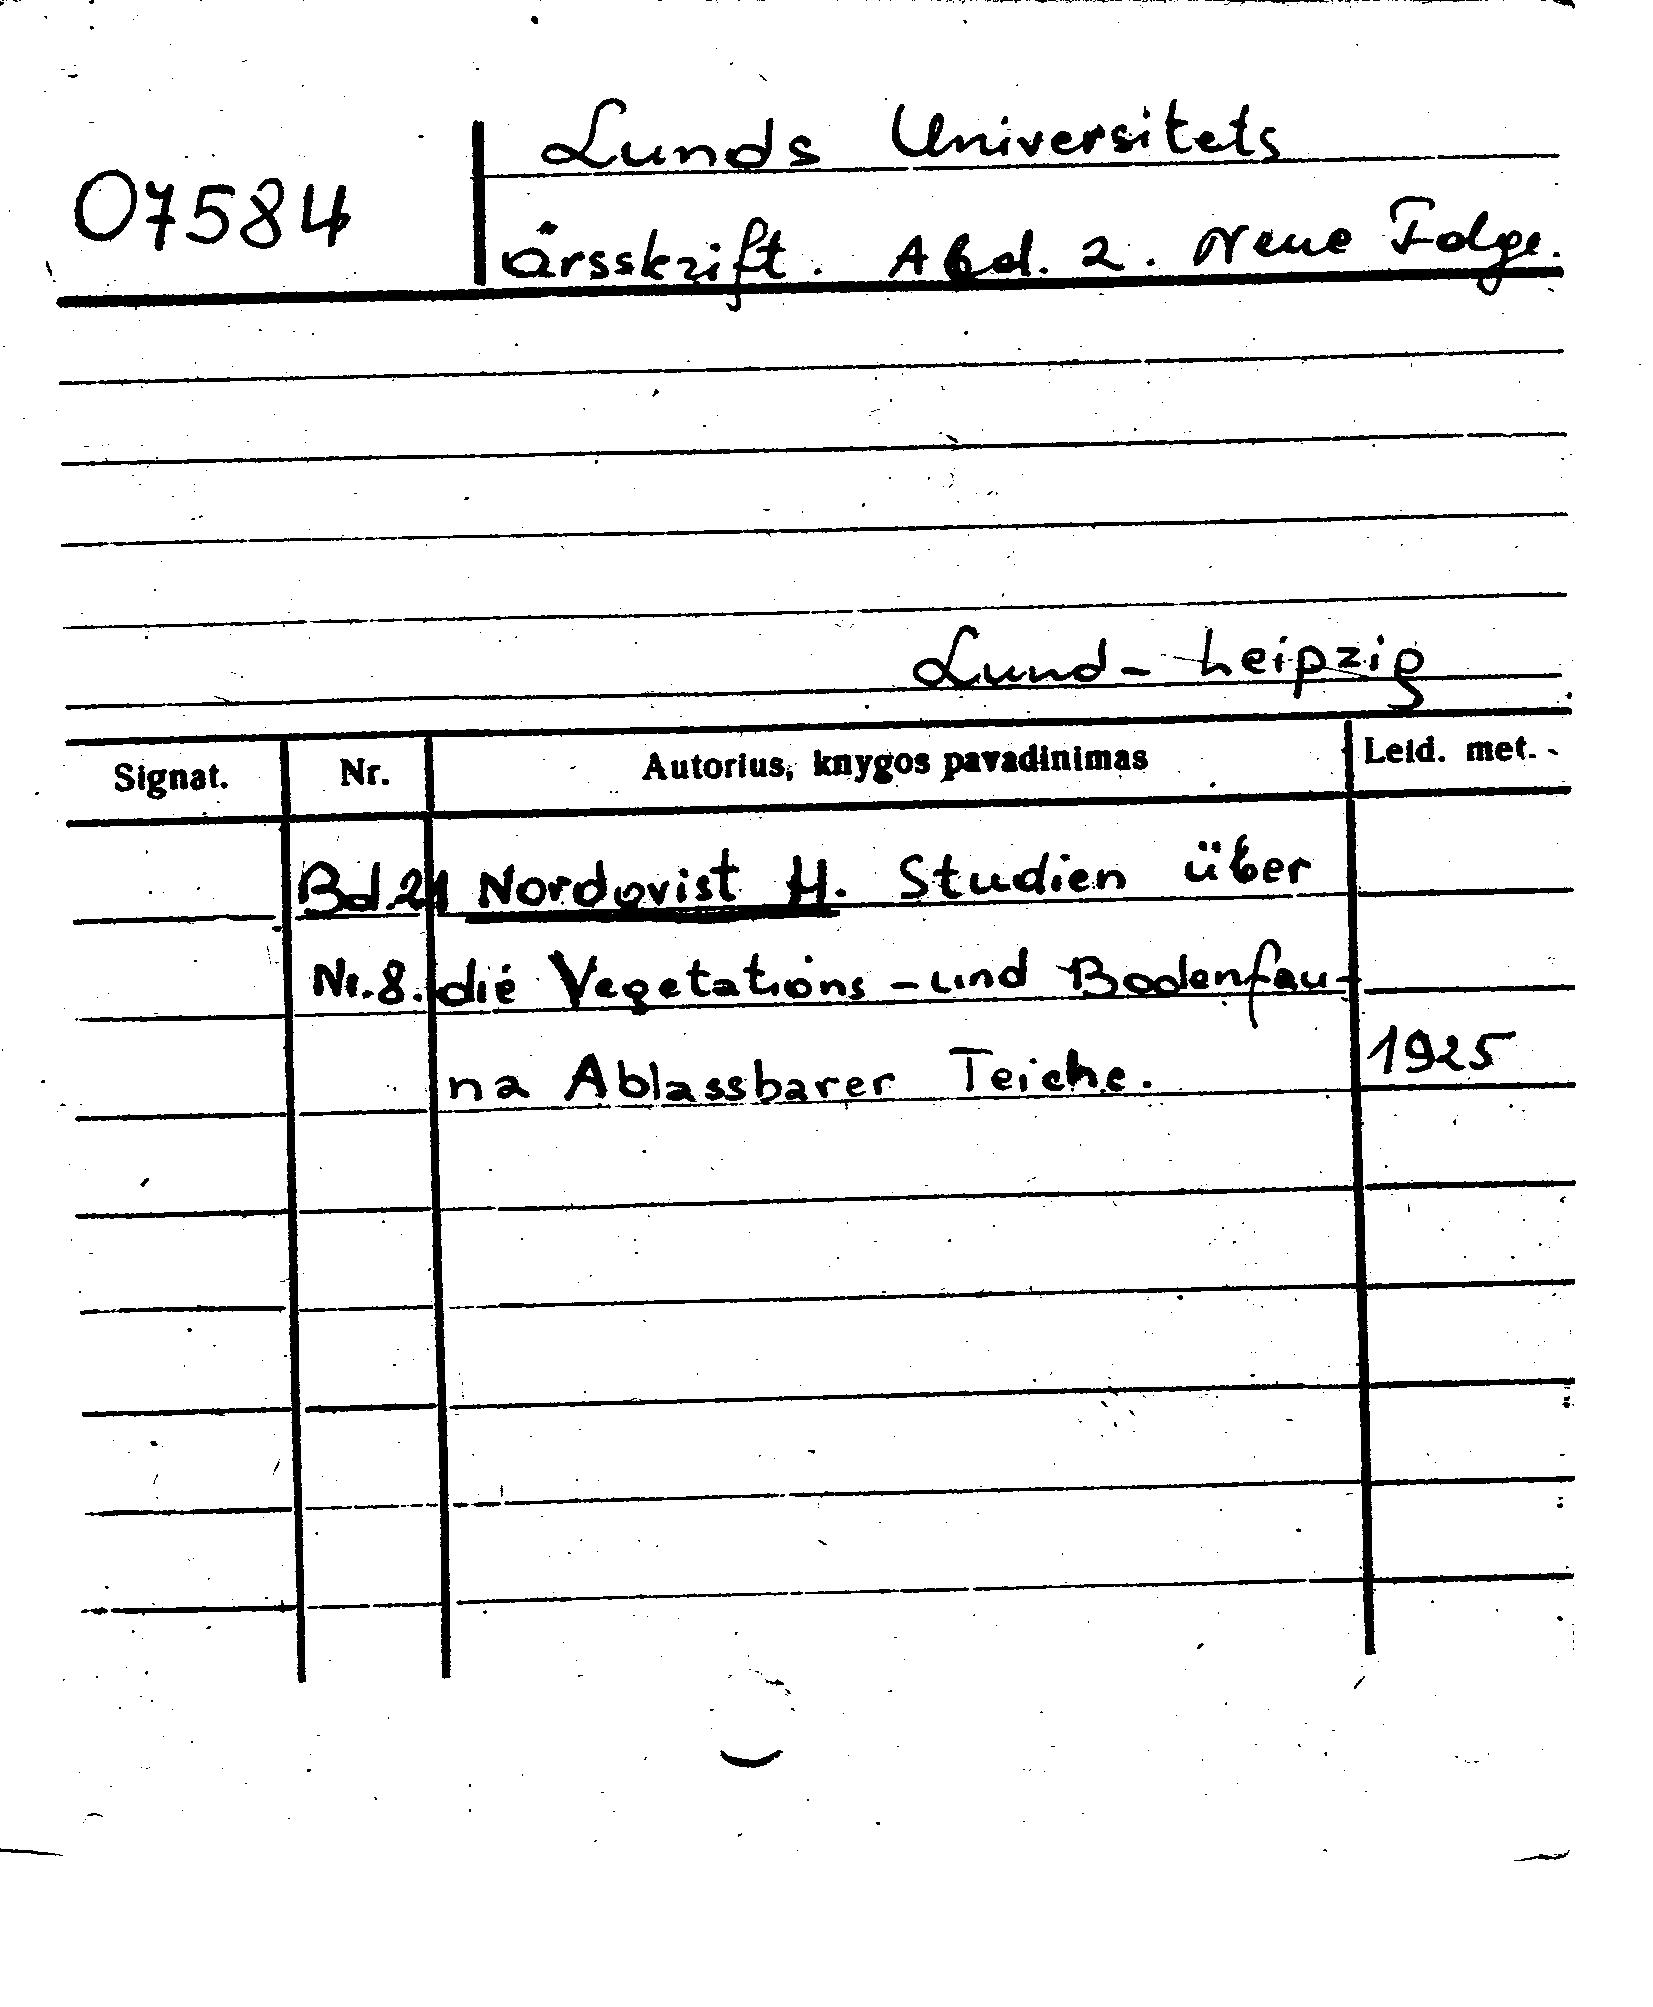 Lunds Universitets
07584
årsskrift. Abd. 2. Neue Folge.
Lund - Leipzig
Signat. Nr. Autorius, knygos pavadinimas Leid. met.
Bd.21 Nordqvist H. Studien über
Nr.8. die Vegetations - und Bodenfau-
na Ablassbarer Teiche. 1925